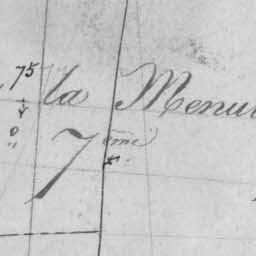 75
la Menu
7eme